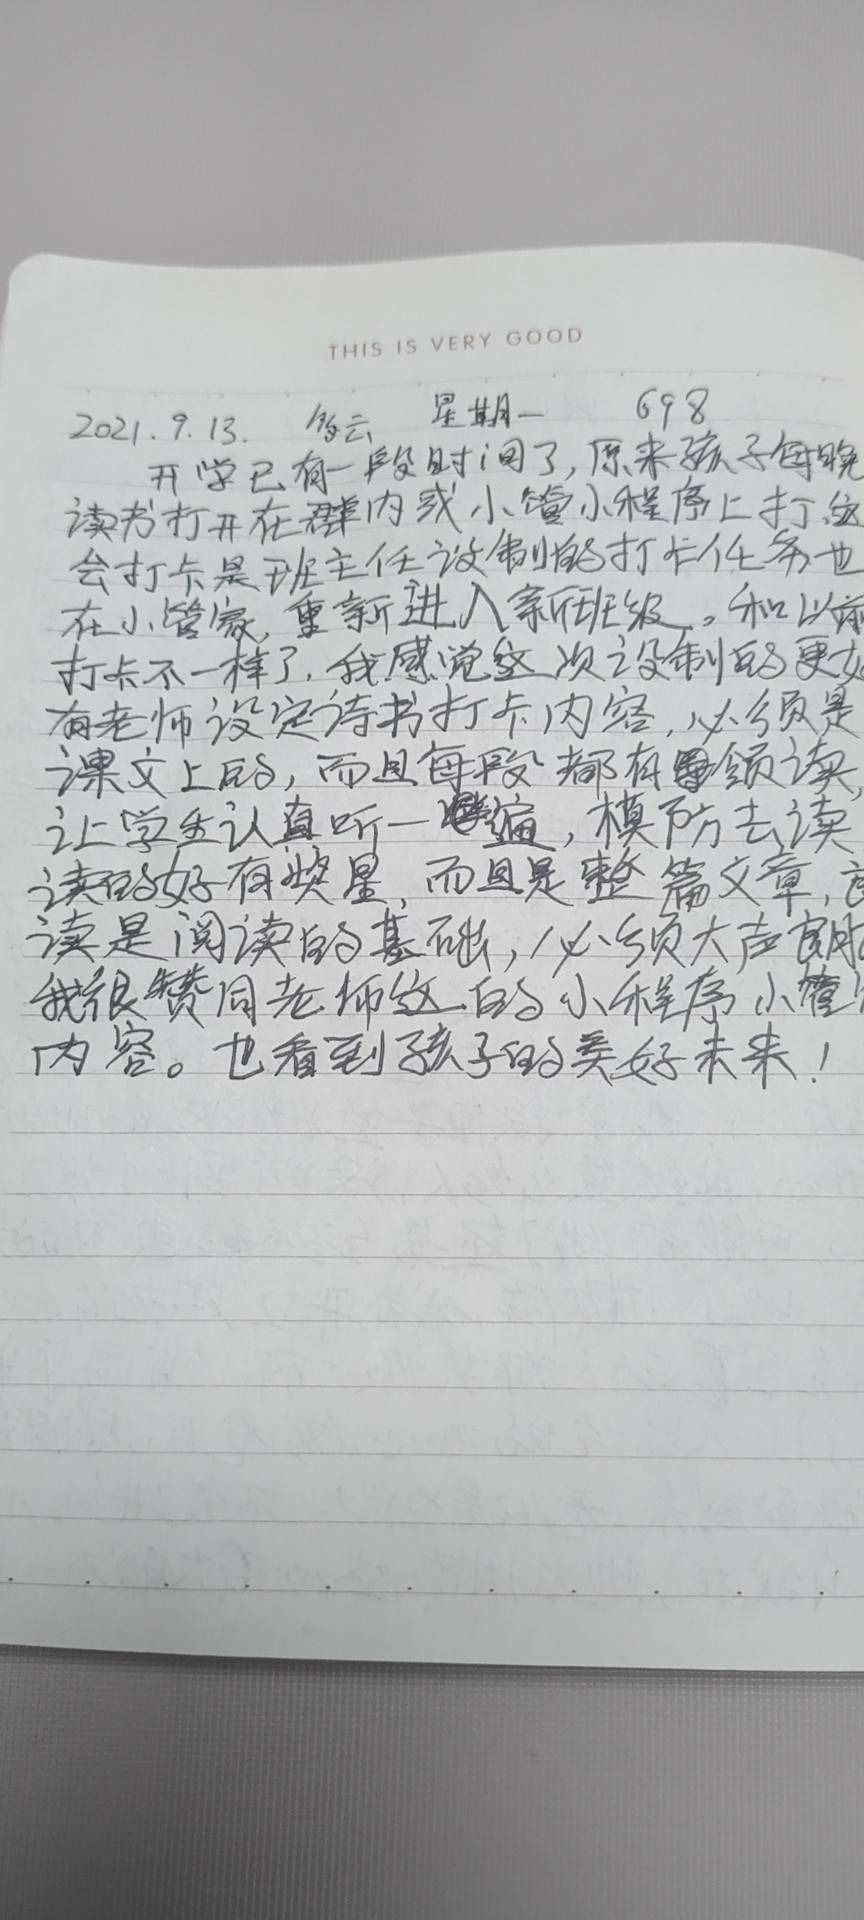 THIS IS VERY GOOD
2021.9.13. 多云 星期一 698
开学已有一段时间了,原来孩子每晚
读书打开在群内或小管小程序上打,这
会打卡是班主任设制的打卡任务也
在小管家,重新进入新班级。和以前
打卡不一样了,我感觉这次设制的更好
有老师设定读书打卡内容,必须是
课文上的,而且每段都有领读,
让学生认真听一遍,模防去读
读的好有奖星,而且是整篇文章,
读是阅读的基础,必须大声朗
我很赞同老师这的小程序小管
内容。也看到孩子的美好未来!